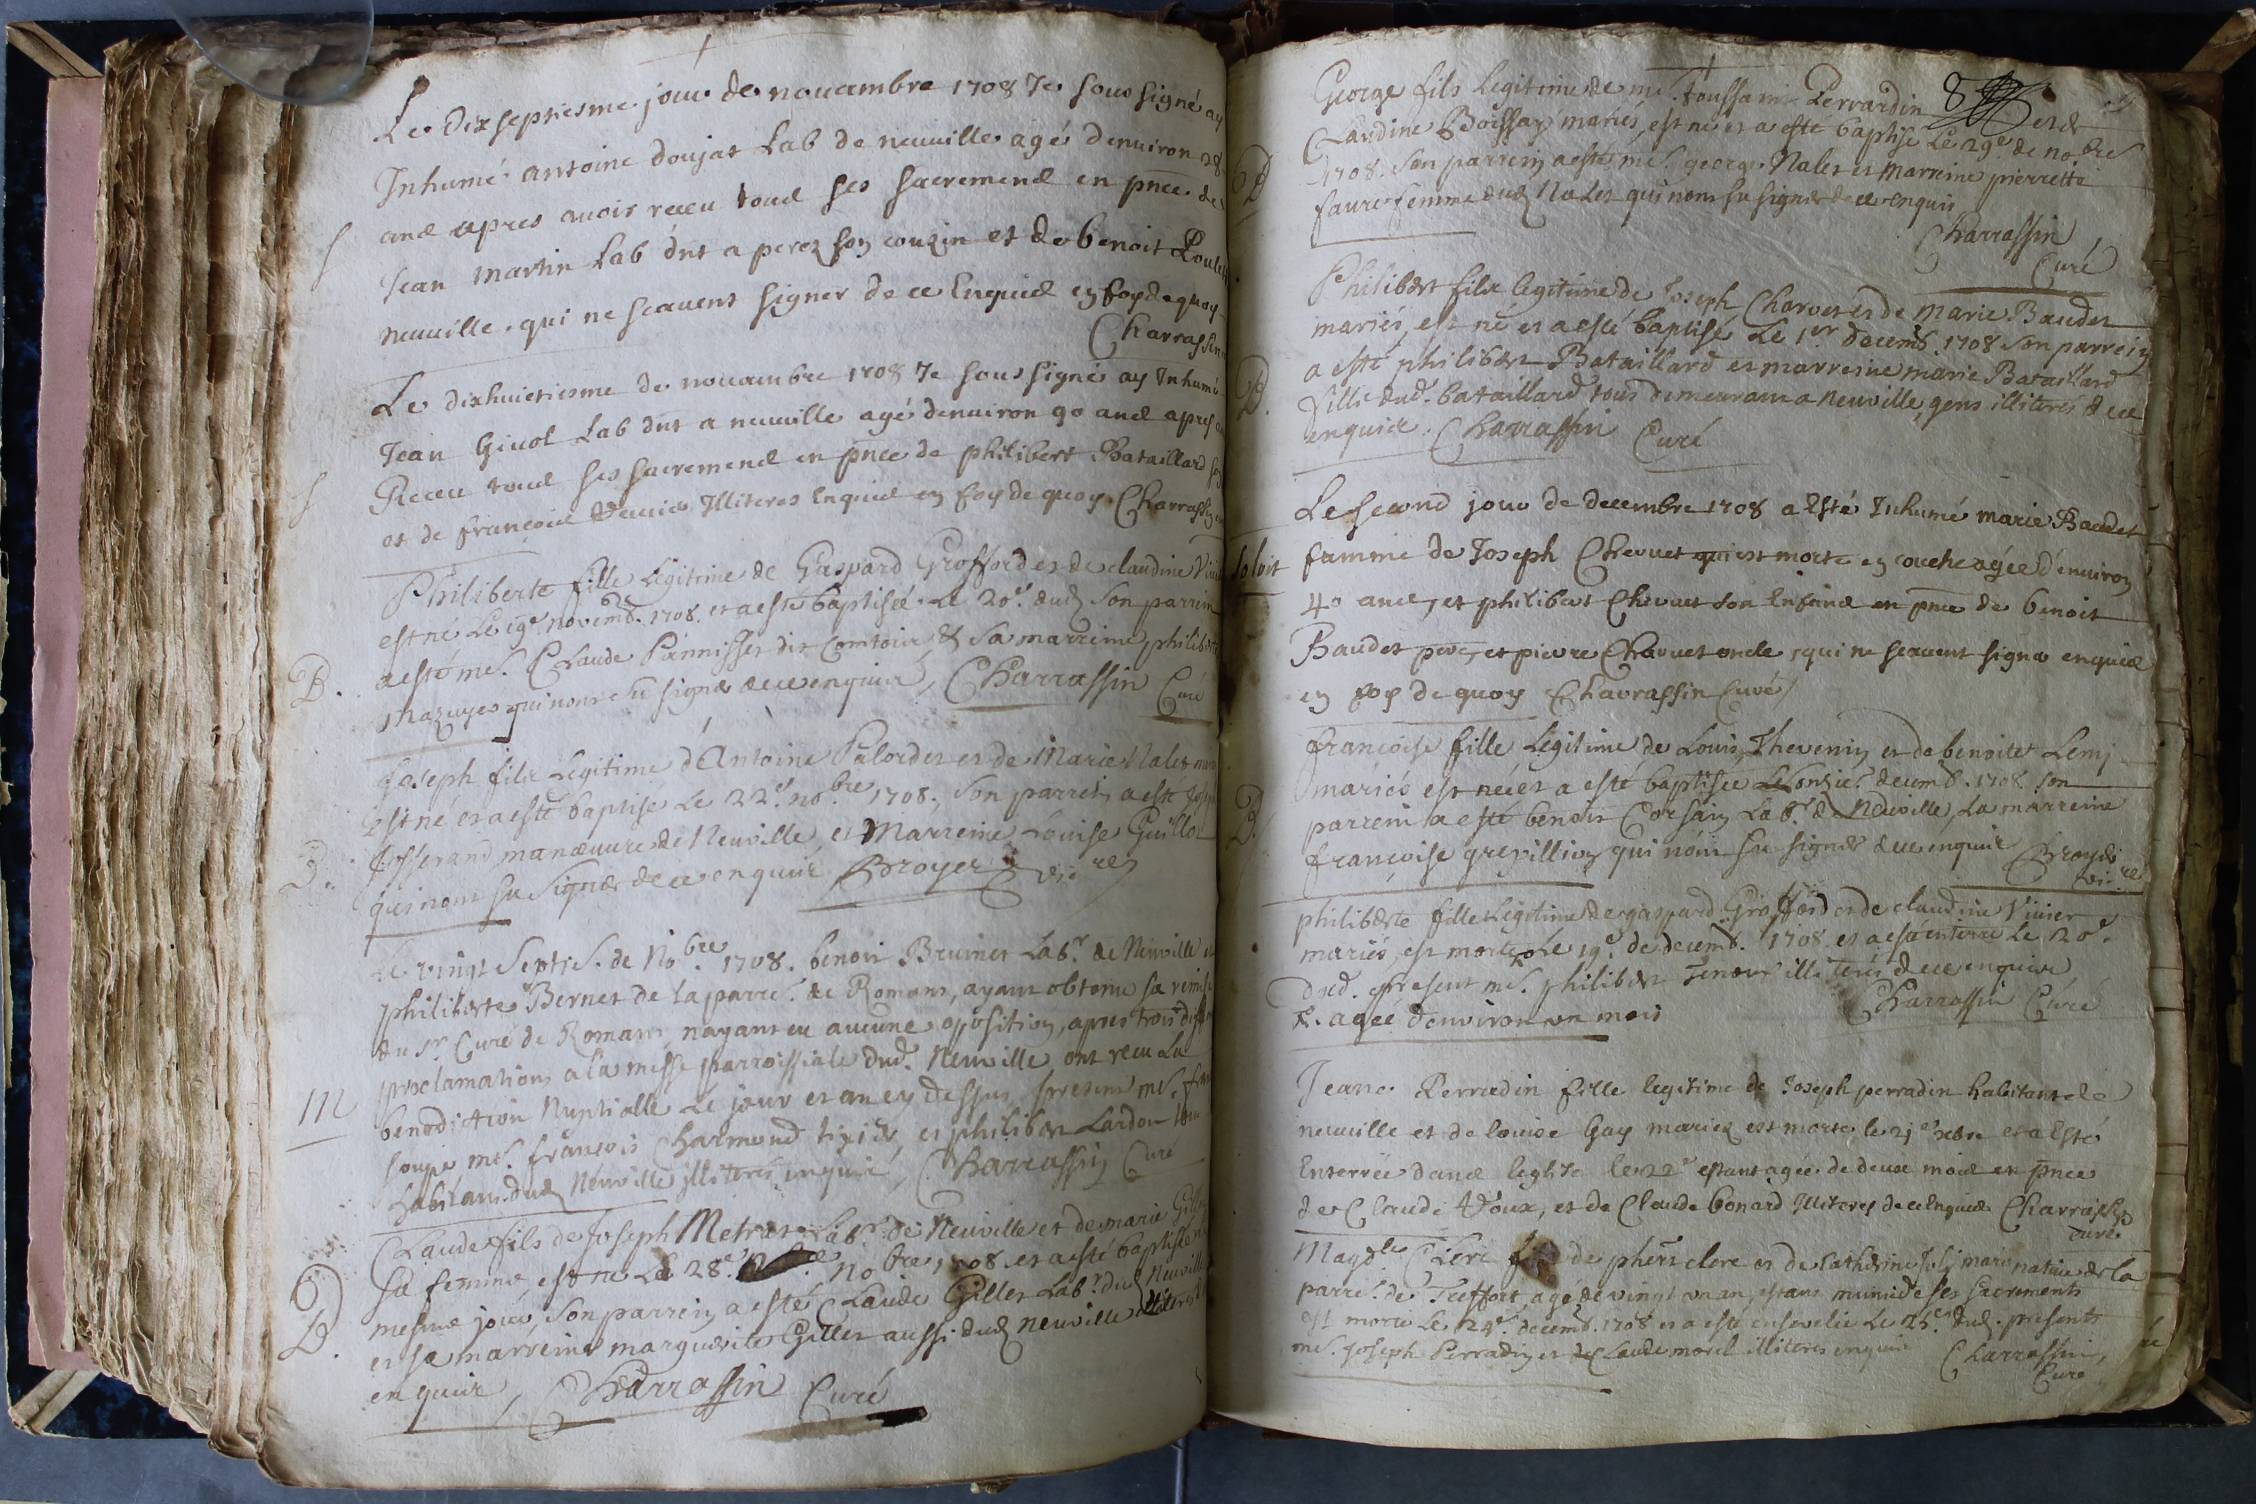 Le dixseptiesme jour de nouambre 1708 Je soussigné ay
Inhumé antoine doujat Lab de neuuille agé denuiron 28
ans apres auoir receu tous ses sacremens en pnce de
Jean martin Lab dnt a perez son couzin et de benoit
neuuille qui ne scauent signer de ce Enquis en foy de quoy
Charrassin
Le dixhuictiesme de nouambre 1708 Je soussigné ay Inhumé
Jean Giuot Lab dnt a neuuille agé denuiron 90 ans apres
Receu tous ses sacremens en pnce de philibert Bataillard
et de françois Illiteres Enquis en foy de quoy Charrassin
Philiberte fille Legitime de Gaspard Grossord et de claudine
est né Le 19e novemb. 1708. et a esté baptisée Le 20e. dud Son parrein
a esté me. Claude dit Comtois & Sa marreine philiberte
Mazuyer qui nont su signer de ce enquis, Charrassin Curé
B.
Joseph fils Legitime d'Antoine Palordet et de Marie Nalet
est né et a esté baptisé Le 22e. nobre 1708, Son parrein a esté
Josserand manœuure de Neuuille, et Marreine Louise Guillot
qui nont su signer de ce enquis Broyer vicre
Le vingt Septie. de Nobre. 1708. benoit Bruiner Labr. de Neuuille
philiberte Bernet de la parre. de Romans, ayant obtenu sa remise
du sr. Curé de Romans, nayant eu aucune oposition, apres trois
proclamations a la messe parroissiale dud. Neuuille, ont receu La
benediction Nuptialle Le jour et an cy dessus, present me.
soupe me. françois Charmond tixier, et philibert Lardon
habitans dud Neuuille illiteres enquis, Charrassin Curé
M
Claude fils de Joseph Metrat Labr. de Neuuille et de marie
Sa femme est né Le 28e nobre 1708 et a esté baptisé
mesme jour, Son parrein a esté Claude Gillet Labr. dud Neuuille
et sa marreine marguerite Gillet aussi dud neuuille illiteres
enquis, Charrassin Curé
B.
George fils legitime de me. toussaint Perrardin et de
Claudine Boissay mariés, est né et a esté baptisé Le 29e. de nobre
1708. Son parrein a esté me. george Nalet et Marreine pierrette
faure femme dud Nalet qui nont su signer de ce enquis
Charrassin
Curé
B
Philibert fils legitime de Joseph Charvet et de Marie Baudet
mariés, est né et a esté baptisé Le 1er decemb. 1708 Son parrein
a esté philibert Bataillard et marreine marie Bataillard
fille dud. bataillard tous demeurans a Neuuille, gens illiteres de ce
enquis. Charrassin Curé
B.
Le second jour de decembre 1708 a Esté Inhumé marie Baudet
famme de Joseph Chervet qui est morte en couche agée d'enuiron
40 ans, et philibert Chervet son Enfant en pnce de benoit
Baudet pere, et pierre Charvet oncle, qui ne scauent signer enquis
en foy de quoy Charrassin Curé
francoise fille Legitime de Louis Thevenin et de benoite
mariés est née et a esté baptisée decemb. 1708 Son
parrein a esté benoit Corsain Labr. de Neuuille, La marreine
françoise grevillion qui nont su signer de ce enquis Broyer
vicre
B.
philiberte fille Legitime de gaspard Grossord et de claudine Vivier
mariés, est morte Le 19e. de decemb. 1708 et a esté enterré Le 20e.
Dud. present me. philibert Tenour illiteres de ce enquis
agée denviron un mois Charrassin Curé
Jeane Perradin fille legitime de Joseph perradin habitant de
neuuille et de louise Gay mariez est morte le 21e xbre et a Esté
Enterrée dans leglise le 22e estant agée de deux mois en pnce
de Claude et de Claude bonard Illiteres de ce Enquis Charrassin
Curé
Magdle Clere de phert clere et de Catherine Joly mariés native de la
parre. de Treffort, agé de vingt un an, estant muni de ses sacrements
est morte Le 24e. decemb. 1708 et a esté ensevelie Le 25e. dud. presents
me. Joseph Perradin et Claude morel illiteres enquis Charrassin,
Curé